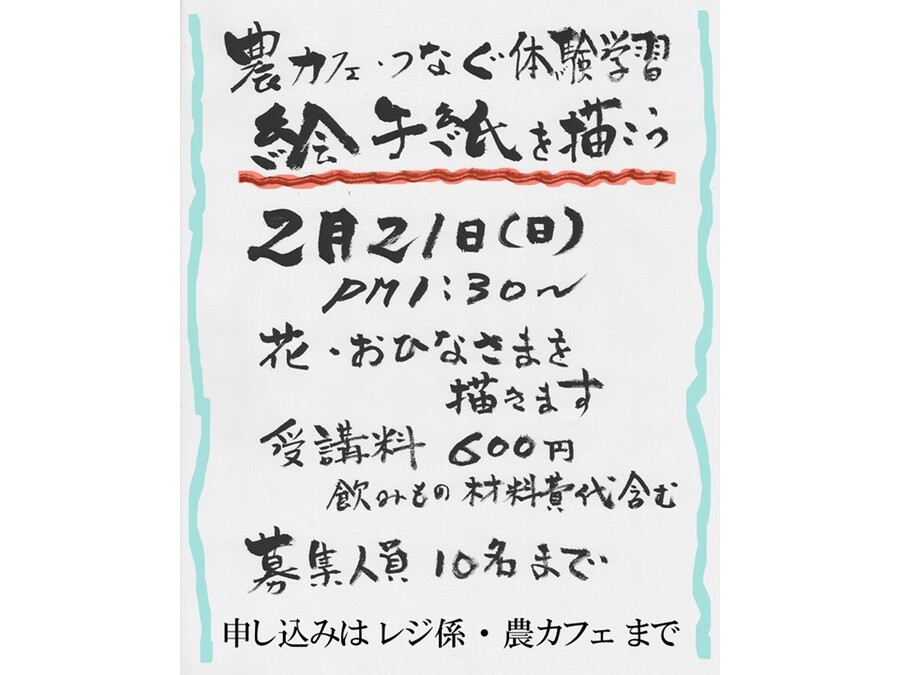 農カフェ・つなぐ体験学習
絵手紙を描こう
2月21日(日)
PM1:30〜
花・おひなさまを
描きます
受講料 600円
飲みもの 材料費代含む
募集人員 10名まで
申し込みは レジ係・農カフェ まで